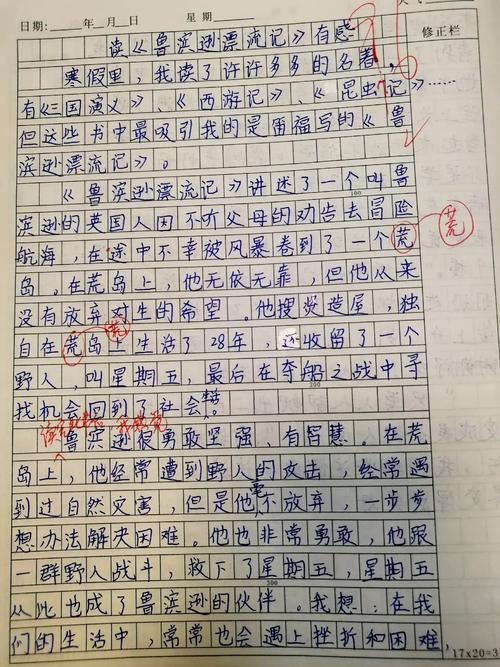 日期: 年 月 日 星期 修正栏
读《鲁滨逊漂流记》有感
寒假里,我读了许许多多的名著,
有《三国演义》、《西游记》、《昆虫记》……
但这些书中最吸引我的是雷福写的《鲁
滨逊漂流记》。
《鲁滨逊漂流记》讲述了一个叫鲁
100
滨逊的英国人因不听父母的劝告去冒险
航海,在途中不幸被风暴卷到了一个荒
荒
岛。在荒岛上,他无依无靠,但他从来
没有放弃对生的希望。他搜炭造屋,独
荒
自在荒岛上生活了28年,还收留了一个
野人,叫星期五,最后在夺船之战中寻
200
找机会回到了社会。
鲁滨逊很勇敢坚强、有智慧。在荒
岛上,他经常遭到野人的攻击,经常遇
到过自然灾害,但是他毫不放弃,一步步
想办法解决困难。他也非常勇敢,他跟
一群野人战斗,救下了星期五,星期五
300
从此也成了鲁滨逊的伙伴。我想:在我
们的生活中,常常也会遇上挫折和困难,
17×20=3